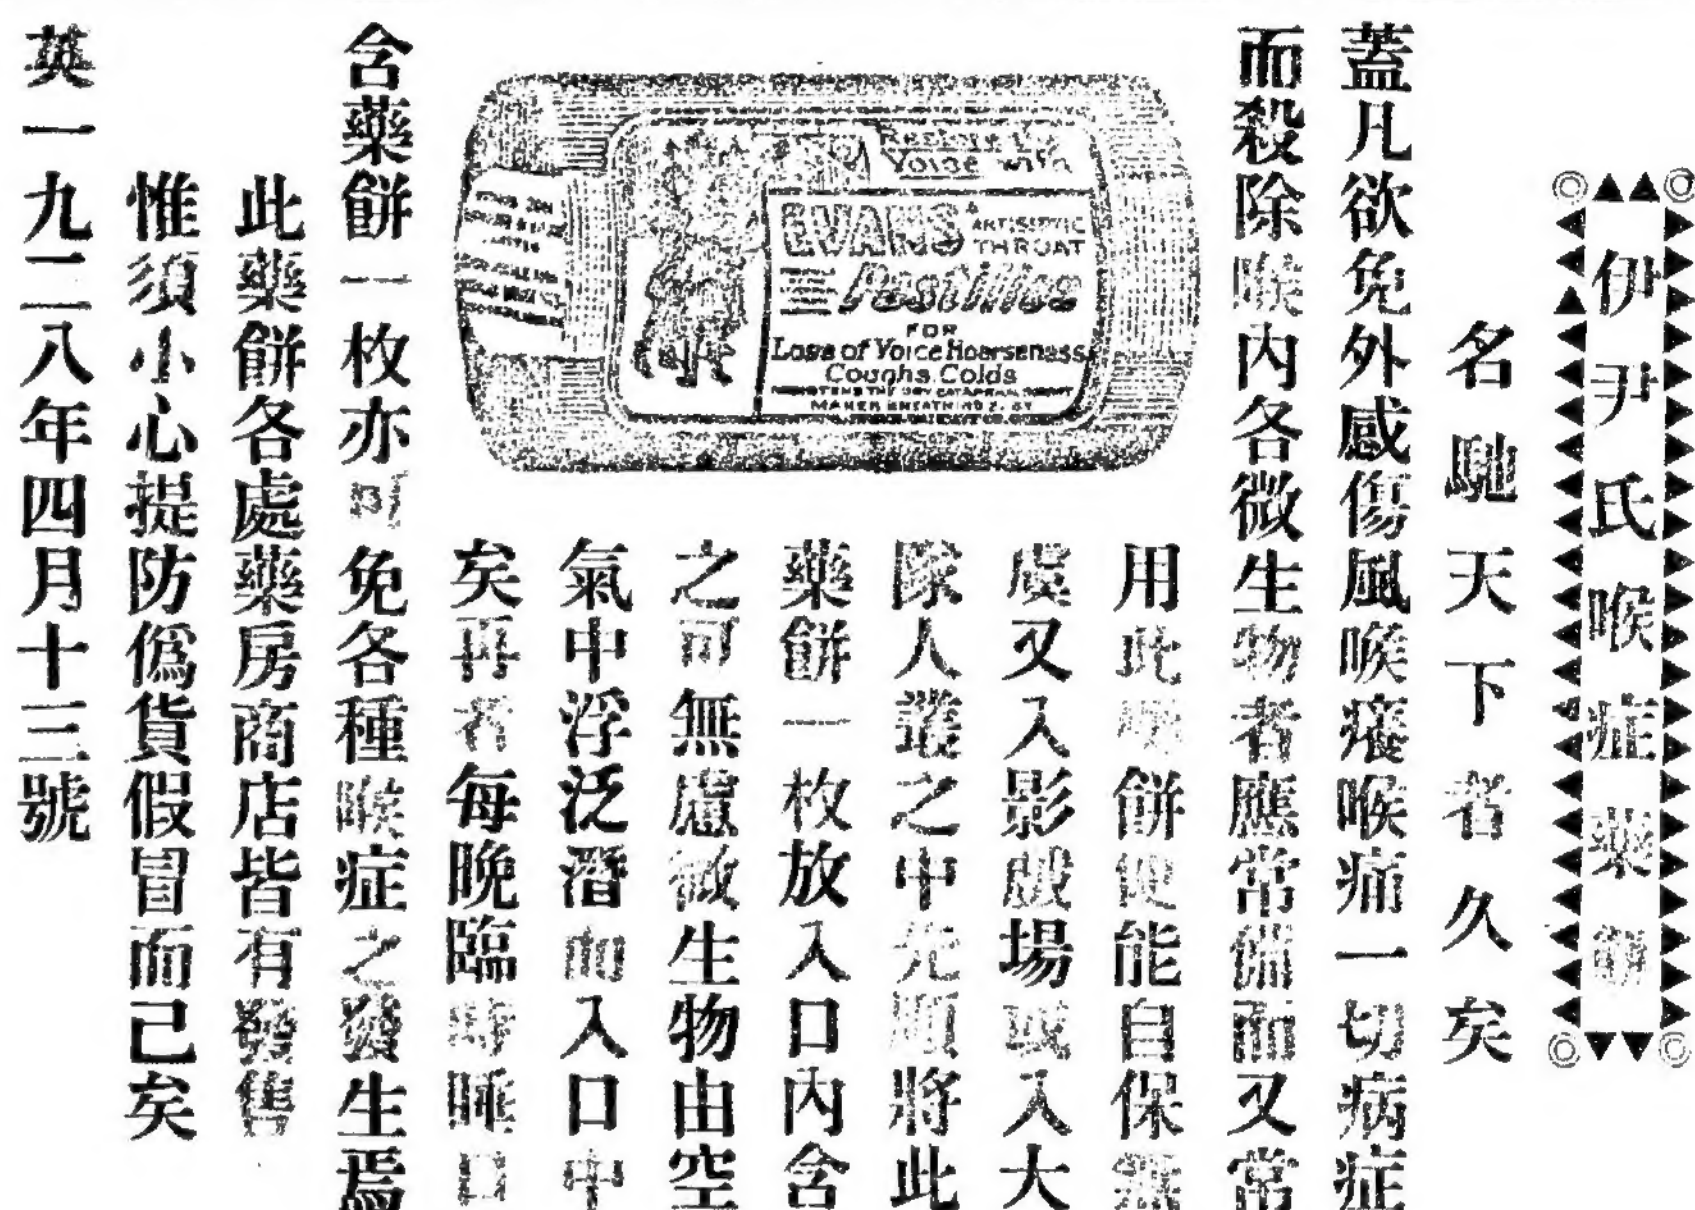 伊尹氏喉症藥餅
名馳天下者久矣
蓋凡欲免外感傷風喉癢喉痛一切病症
而殺除喉內各微生物者應常備而又常
用此喉餅便能自保無
虞又入影戲場或入大
隊人叢之中先順將此
藥餅一枚放入口內含
之可無慮微生物由空
氣中浮泛潛而入口中
矣再者每晚臨時睡口
含藥餅一枚亦可免各種喉症之發生焉
此藥餅各處藥房商店皆有發售
惟須小心提防僞貨假冒而己矣
英一九二八年四月十三號
Restore the
Voice with
EVANS
ANTISEPTIC
THROAT
Pastilles
FOR
Loss of Voice Hoarseness
Coughs Colds